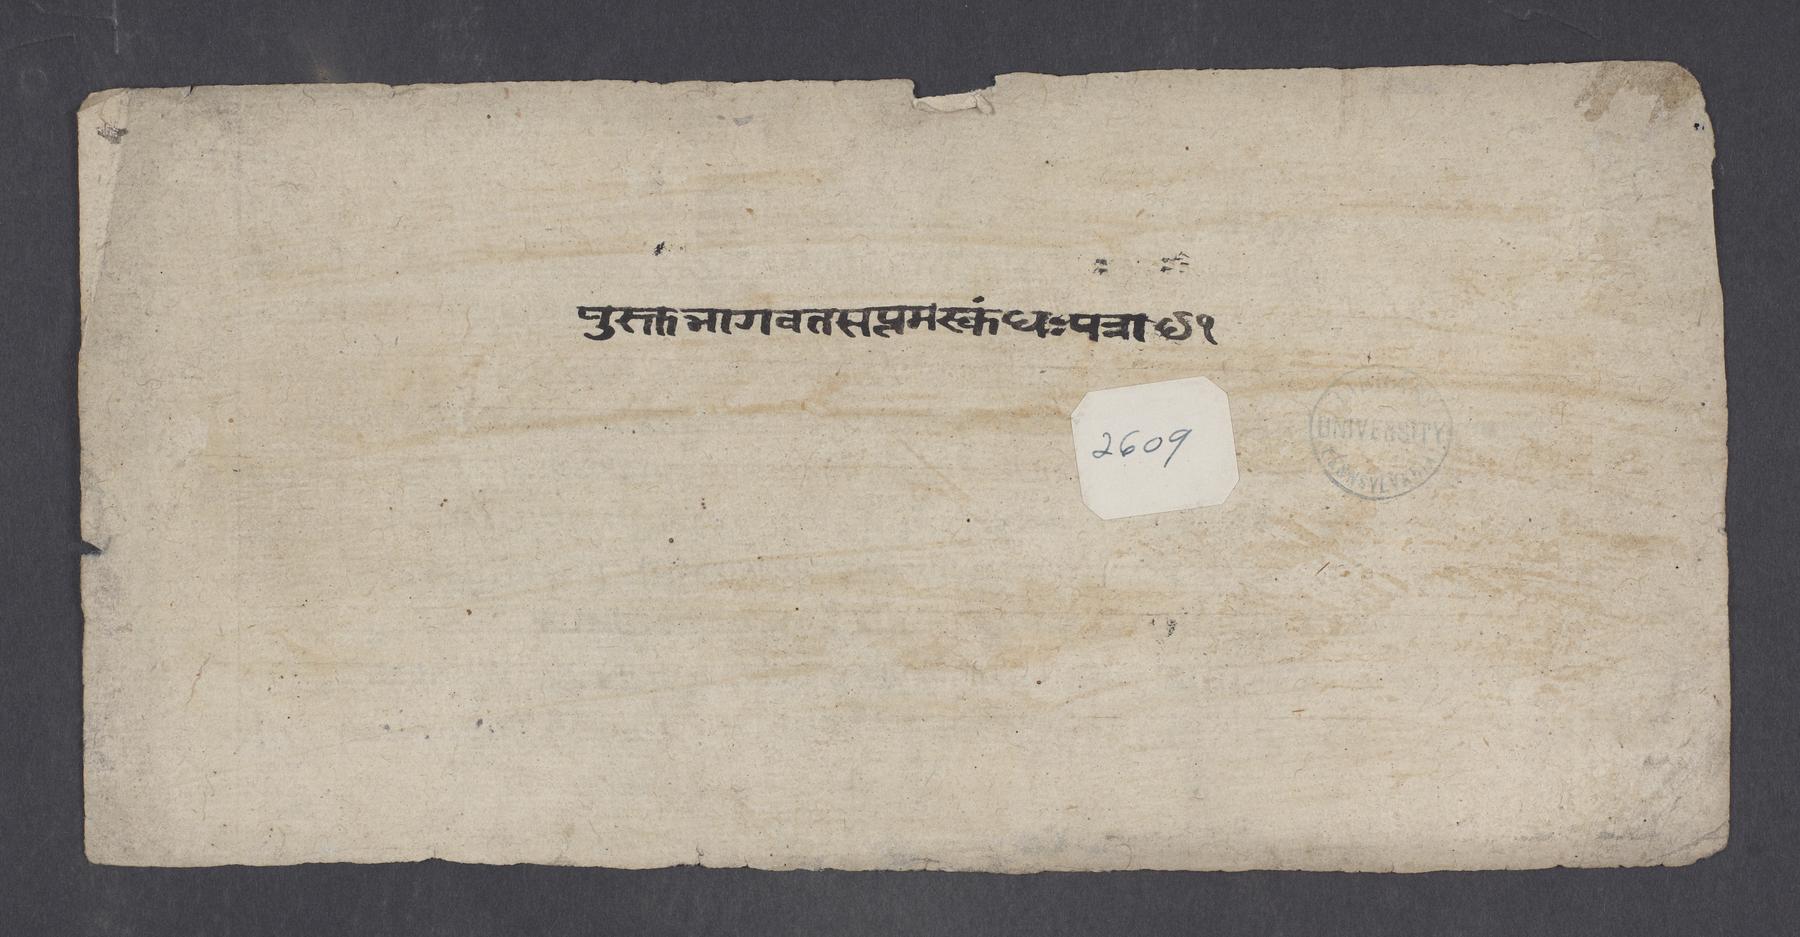 पुस्तभागवतसप्तमस्कंधःपत्रा ६१
2609
LIBRARY
UNIVERSITY
PENNSYLVANIA